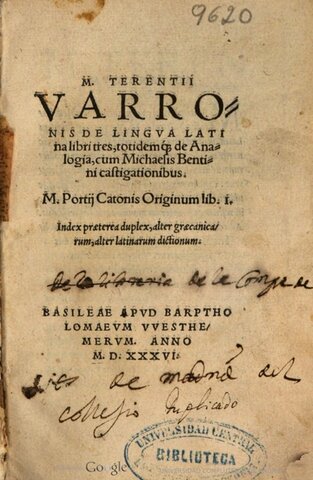 9620
M. TERENTII
VARRO-
NIS DE LINGVA LATI
na libri tres, totidemq́; de Ana-
logia, cum Michaelis Benti-
ni castigationibus.
M. Portij Catonis Originum lib. I.
Index præterea duplex, alter græcanica/
rum, alter latinarum dictionum.
de la libreria de la Comp. de
BASILEAE APVD BARPTHO
LOMAEVM VVESTHE/
MERVM. ANNO
M. D. XXXVI.
de madrid del
collegio duplicado
UNIVERSIDAD CENTRAL
BIBLIOTECA
Google
UNIVERSIDAD